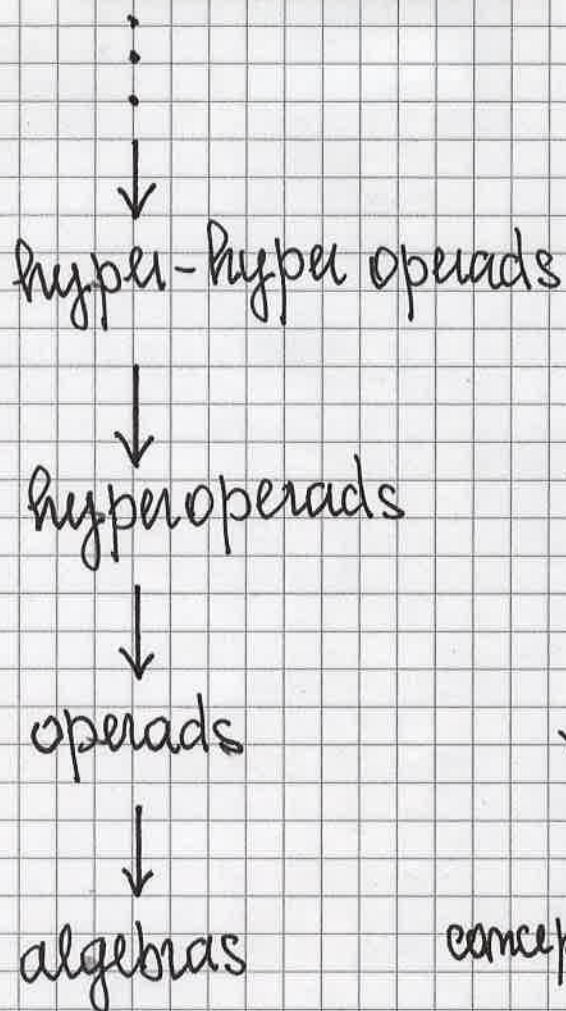 hyper-hyper operads
hyperoperads
operads
algebras